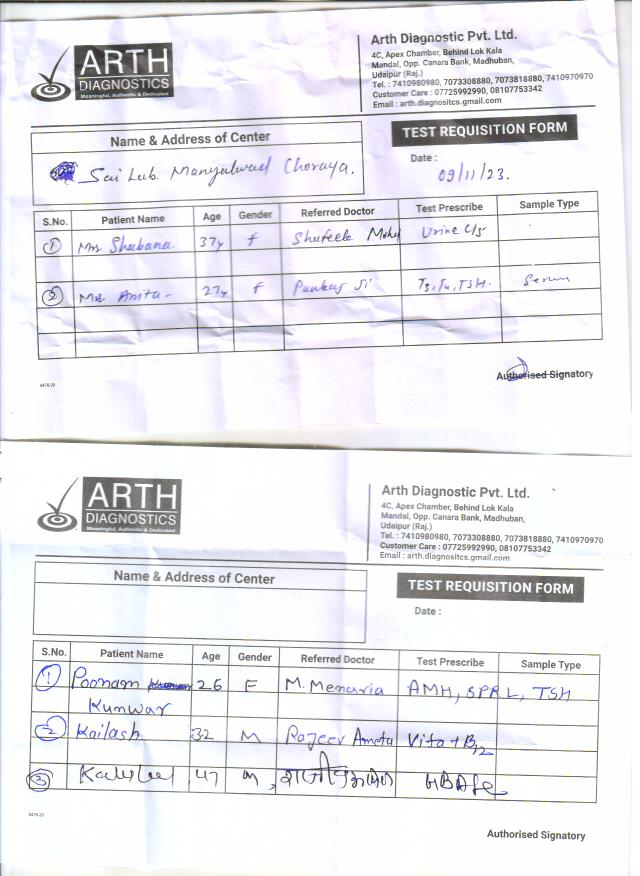 ARTH
DIAGNOSTICS
Meaningful, Authentic & Dedicated
Arth Diagnostic Pvt. Ltd.
4C, Apex Chamber, Behind Lok Kala
Mandal, Opp. Canara Bank, Madhuban,
Udaipur (Raj.)
Tel. : 7410980980, 7073308880, 7073818880, 7410970970
Customer Care : 07725992990, 08107753342
Email : arth.diagnositcs.gmail.com
Name & Address of Center
TEST REQUISITION FORM
Sai Lab. Choraya.
Date :
09/11/23.
S.No. Patient Name Age Gender Referred Doctor Test Prescribe Sample Type
1 Mrs Shabana 37y F Urine C/S
2 Mrs Anita - 27y F Pankaj Ji T3, T4, TSH. Serum
6476-20
Authorised Signatory
ARTH
DIAGNOSTICS
Meaningful, Authentic & Dedicated
Arth Diagnostic Pvt. Ltd.
4C, Apex Chamber, Behind Lok Kala
Mandal, Opp. Canara Bank, Madhuban,
Udaipur (Raj.)
Tel. : 7410980980, 7073308880, 7073818880, 7410970970
Customer Care : 07725992990, 08107753342
Email : arth.diagnositcs.gmail.com
Name & Address of Center
TEST REQUISITION FORM
Date :
S.No. Patient Name Age Gender Referred Doctor Test Prescribe Sample Type
1 Poonam 26 F M. Menaria AMH, SPRL, TSH
Kunwar
2 Kailash 32 M Rajeev Ameta Vita + B12
3 47 M
6476-20
Authorised Signatory